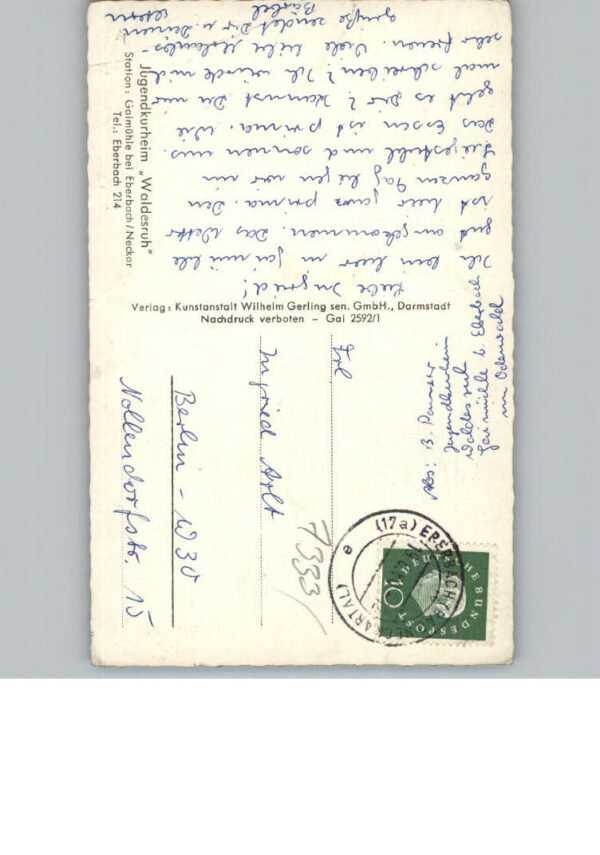 Jugendkurheim „Waldesruh"
Station: Gaimühle bei Eberbach/Neckar
Tel.: Eberbach 214
Liebe Ingrid!
Ich bin hier in Gaimühle
gut angekommen. Das Wetter
ist hier ganz prima. Den
ganzen Tag liegen wir im
Liegestuhl und sonnen uns.
Das Essen ist prima. Wie
geht es Dir? Kannst Du mir
mal schreiben? Ich würde mich
sehr freuen. Viele liebe Urlaubs-
grüße sendet Dir u. Deinen
Eltern Bärbel
Verlag: Kunstanstalt Wilhelm Gerling sen. GmbH., Darmstadt
Nachdruck verboten – Gai 2592/1
Abs: B.
Jugendkurheim
Waldesruh
Gaimühle b. Eberbach
im Odenwald
Frl
Ingrid Arlt
Berlin - W 30
Nollendorfstr. 15
7333/
(17a) EBERBACH (NECKARTAL)
e
DEUTSCHE BUNDESPOST
10